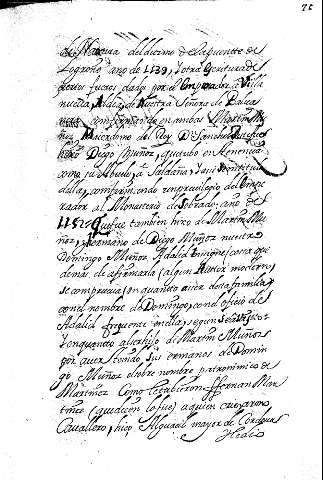 de Naxera del diezmo de la puente de
Logroño año de 1139, Y otra escritura de
ciertos fueros dada por el Emperador a Villa
nueva, Aldea de Nuestra Señora de
confirmando en ambas Martin Mu
ñoz Maiordomo del Rey D. Sancho
hijo Diego Muñoz, que tubo en tenencia
como su Abuelo, a Saldaña,
della, confirmando un privilegio del Empe
rador al Monasterio de Sobrado, año de
1152. Que fue tambien hixo de Martin Mu
ñoz, y hermano de Diego Muñoz nuestro
Domingo Muñoz, Adalid Insigne, cosa que
demas de afirmarla algun Autor moderno
se comprueva, en quanto a ser desta familia
con el nombre de Domingo, con el oficio de
Adalid frequente en ella, segun se a visto:
Y en quanto a ser hijo de Martin Muñoz
por aver tenido sus ermanos de Domin
go Muñoz el sobre nombre patronimico de
Martinez Como le tubieron Hernan Mar
tinez (que dicen lo fue) a quien cupo, armo
Cavallero, hiço Alguacil mayor de Cordova